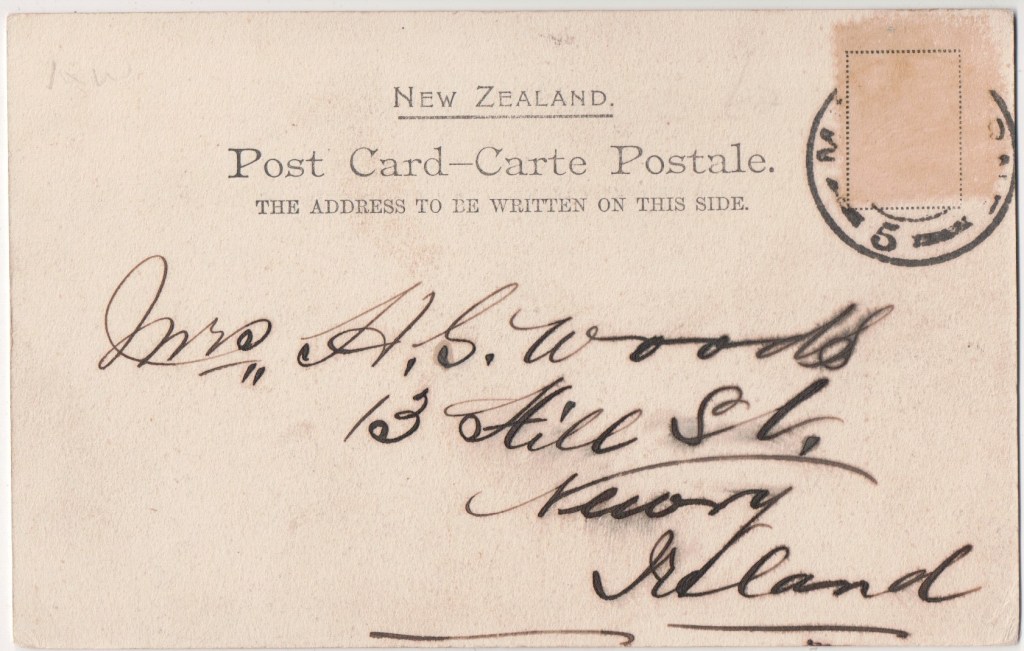 NEW ZEALAND.
Post Card–Carte Postale.
THE ADDRESS TO BE WRITTEN ON THIS SIDE.
5
Mrs, H. G. Woods
13 Hill St.
Newry
Ireland